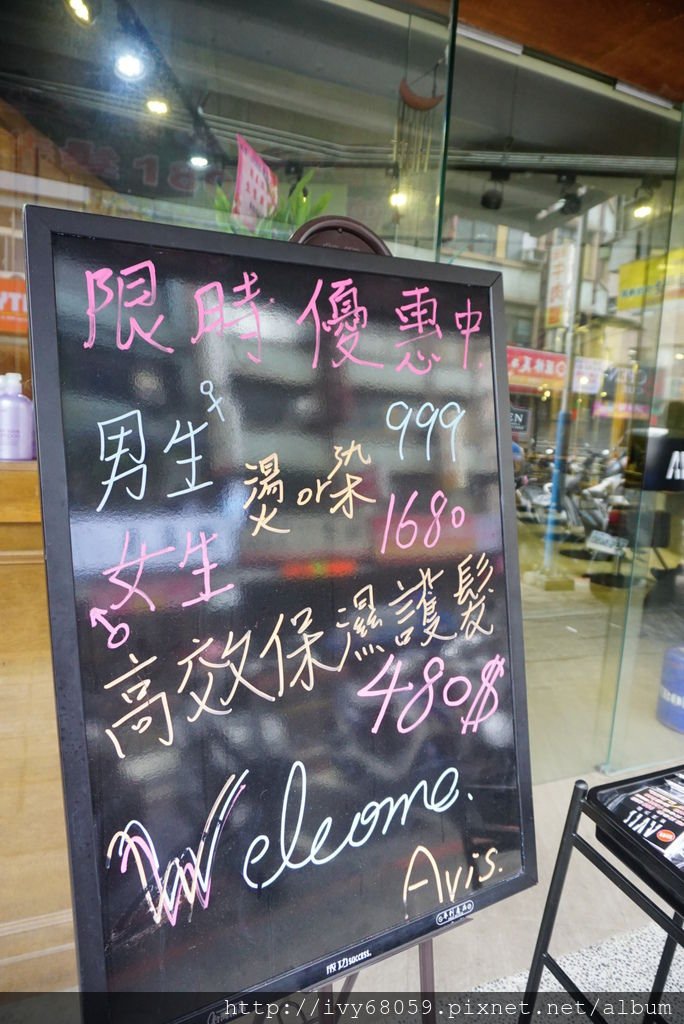 限時優惠中.
男生♀ 999
燙or染
女生 1680
♂
高效保濕護髮
480$
Welcome.
Avis.
成功SUCCESS.
AVIS
http://ivy68059.pixnet.net/album